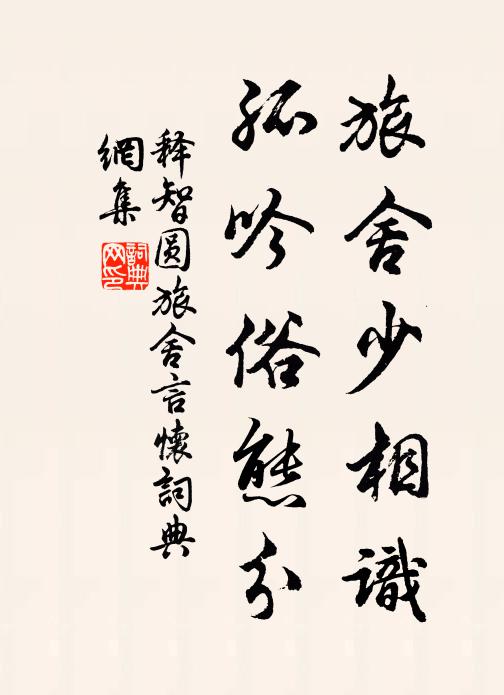 旅舍少相識
孤吟俗態分
释智圆旅舍言懷詞典
網集
詞典
网印